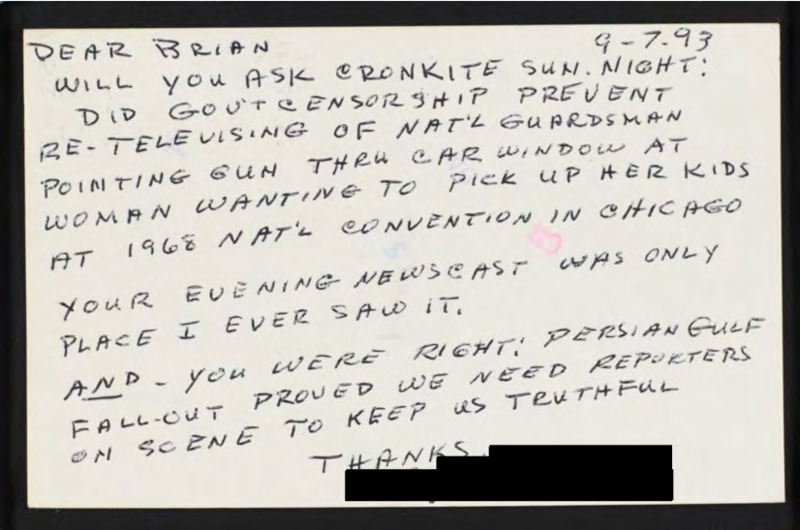 DEAR BRIAN 9-7-93
WILL YOU ASK CRONKITE SUN. NIGHT:
DID GOV'T CENSORSHIP PREVENT
RE-TELEVISING OF NAT'L GUARDSMAN
POINTING GUN THRU CAR WINDOW AT
WOMAN WANTING TO PICK UP HER KIDS
AT 1968 NAT'L CONVENTION IN CHICAGO
YOUR EVENING NEWSCAST WAS ONLY
PLACE I EVER SAW IT.
AND - YOU WERE RIGHT: PERSIAN GULF
FALL-OUT PROVED WE NEED REPORTERS
ON SCENE TO KEEP US TRUTHFUL
THANKS,